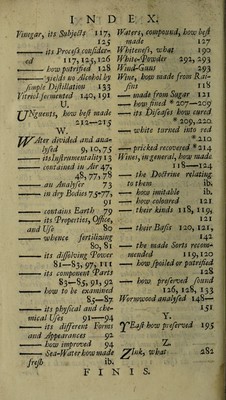 INDEX.
Vinegar, its Subjects 117,
125
its Process consider-
ed 117, 125, 126
how putrified 126
yields no Alcohol by
simple Distillation 133
Vitriol fermented 140, 191
U.
UNguents, how best made
212—215
W.
WAter divided and ana-
lysed 9, 10, 75
its Instrumentality 13
contained in Air 47,
48, 77, 78
an Analyser 73
in dry Bodies 75-77,
91
contains Earth 79
its Properties, Office,
and Use 80
whence fertilizing
80, 81
its dissolving Power
81—83, 97, 111
its component Parts
83—85, 91, 92
how to be examined
85—87
its physical and che-
mical Uses 91—94
its different Forms
and Appearances 92
how improved 94
Sea-Water how made
fresh ib.
Waters, compound, how best
made 127
Whiteness, what 190
White-Powder 292, 293
Wind-Guns 293
Wine, how made from Rai-
sins 118
made from Sugar 121
how fined * 207—209
its Diseases how cured
* 209, 220
white turned into red
* 210
pricked recovered * 214
Wines, in general, how made
118—121
the Doctrine relating
to them ib.
how imitable ib.
how coloured 121
their kinds 118, 119,
121
their Basis 120, 121,
142
the made Sorts recom-
mended 119, 120
how spoiled or putrified
128
how preserved sound
126, 128, 133
Wormwood analysed 148—
151
Y.
YEast how preserved 195
Z.
ZInk, what 282
FINIS.